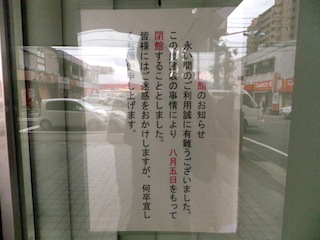 閉館のお知らせ
永い間のご利用誠に有難うございました。
この度諸般の事情により 八月五日をもって
閉館することとしました。
皆様にはご迷惑をおかけしますが、何卒宜し
くお願い申し上げます。